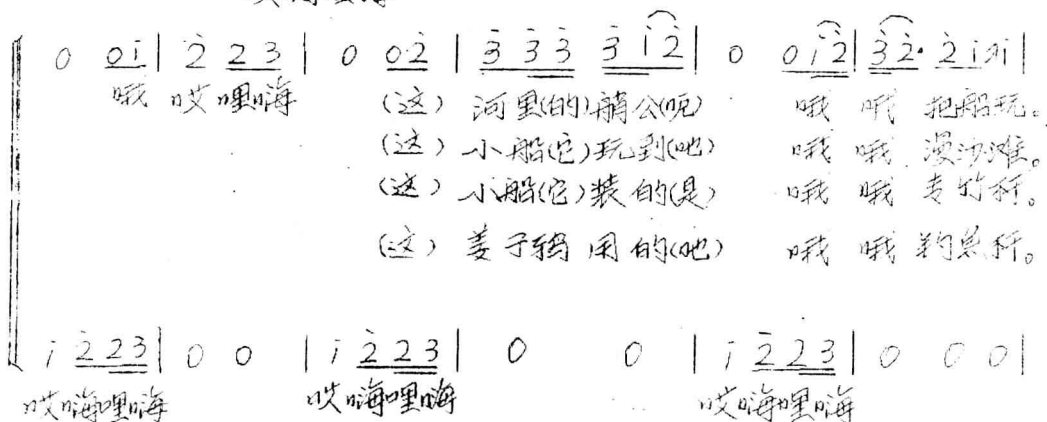 0 0i | 2̇ 2 2 3 | 0 02̇ | 3̇ 3̇ 3̇ 3̇ i 2̇ | 0 0 i 2̇ | 3̇ 2̇· 2̇ i i |
哦 哎 哩嗨 (这) 河里(的)艄公(呃) 哦 哦 把船玩。
(这) 小船(它)玩到(吔) 哦 哦 漫沙滩。
(这) 小船(它)装的(是) 哦 哦 竹杆。
(这) 姜子 用的(吔) 哦 哦 钓鱼杆。
i 2̇ 2 3 | 0 0 | i 2̇ 2 3 | 0 0 | i 2̇ 2 3 | 0 0 0 |
哎嗨哩嗨 哎嗨哩嗨 哎嗨哩嗨